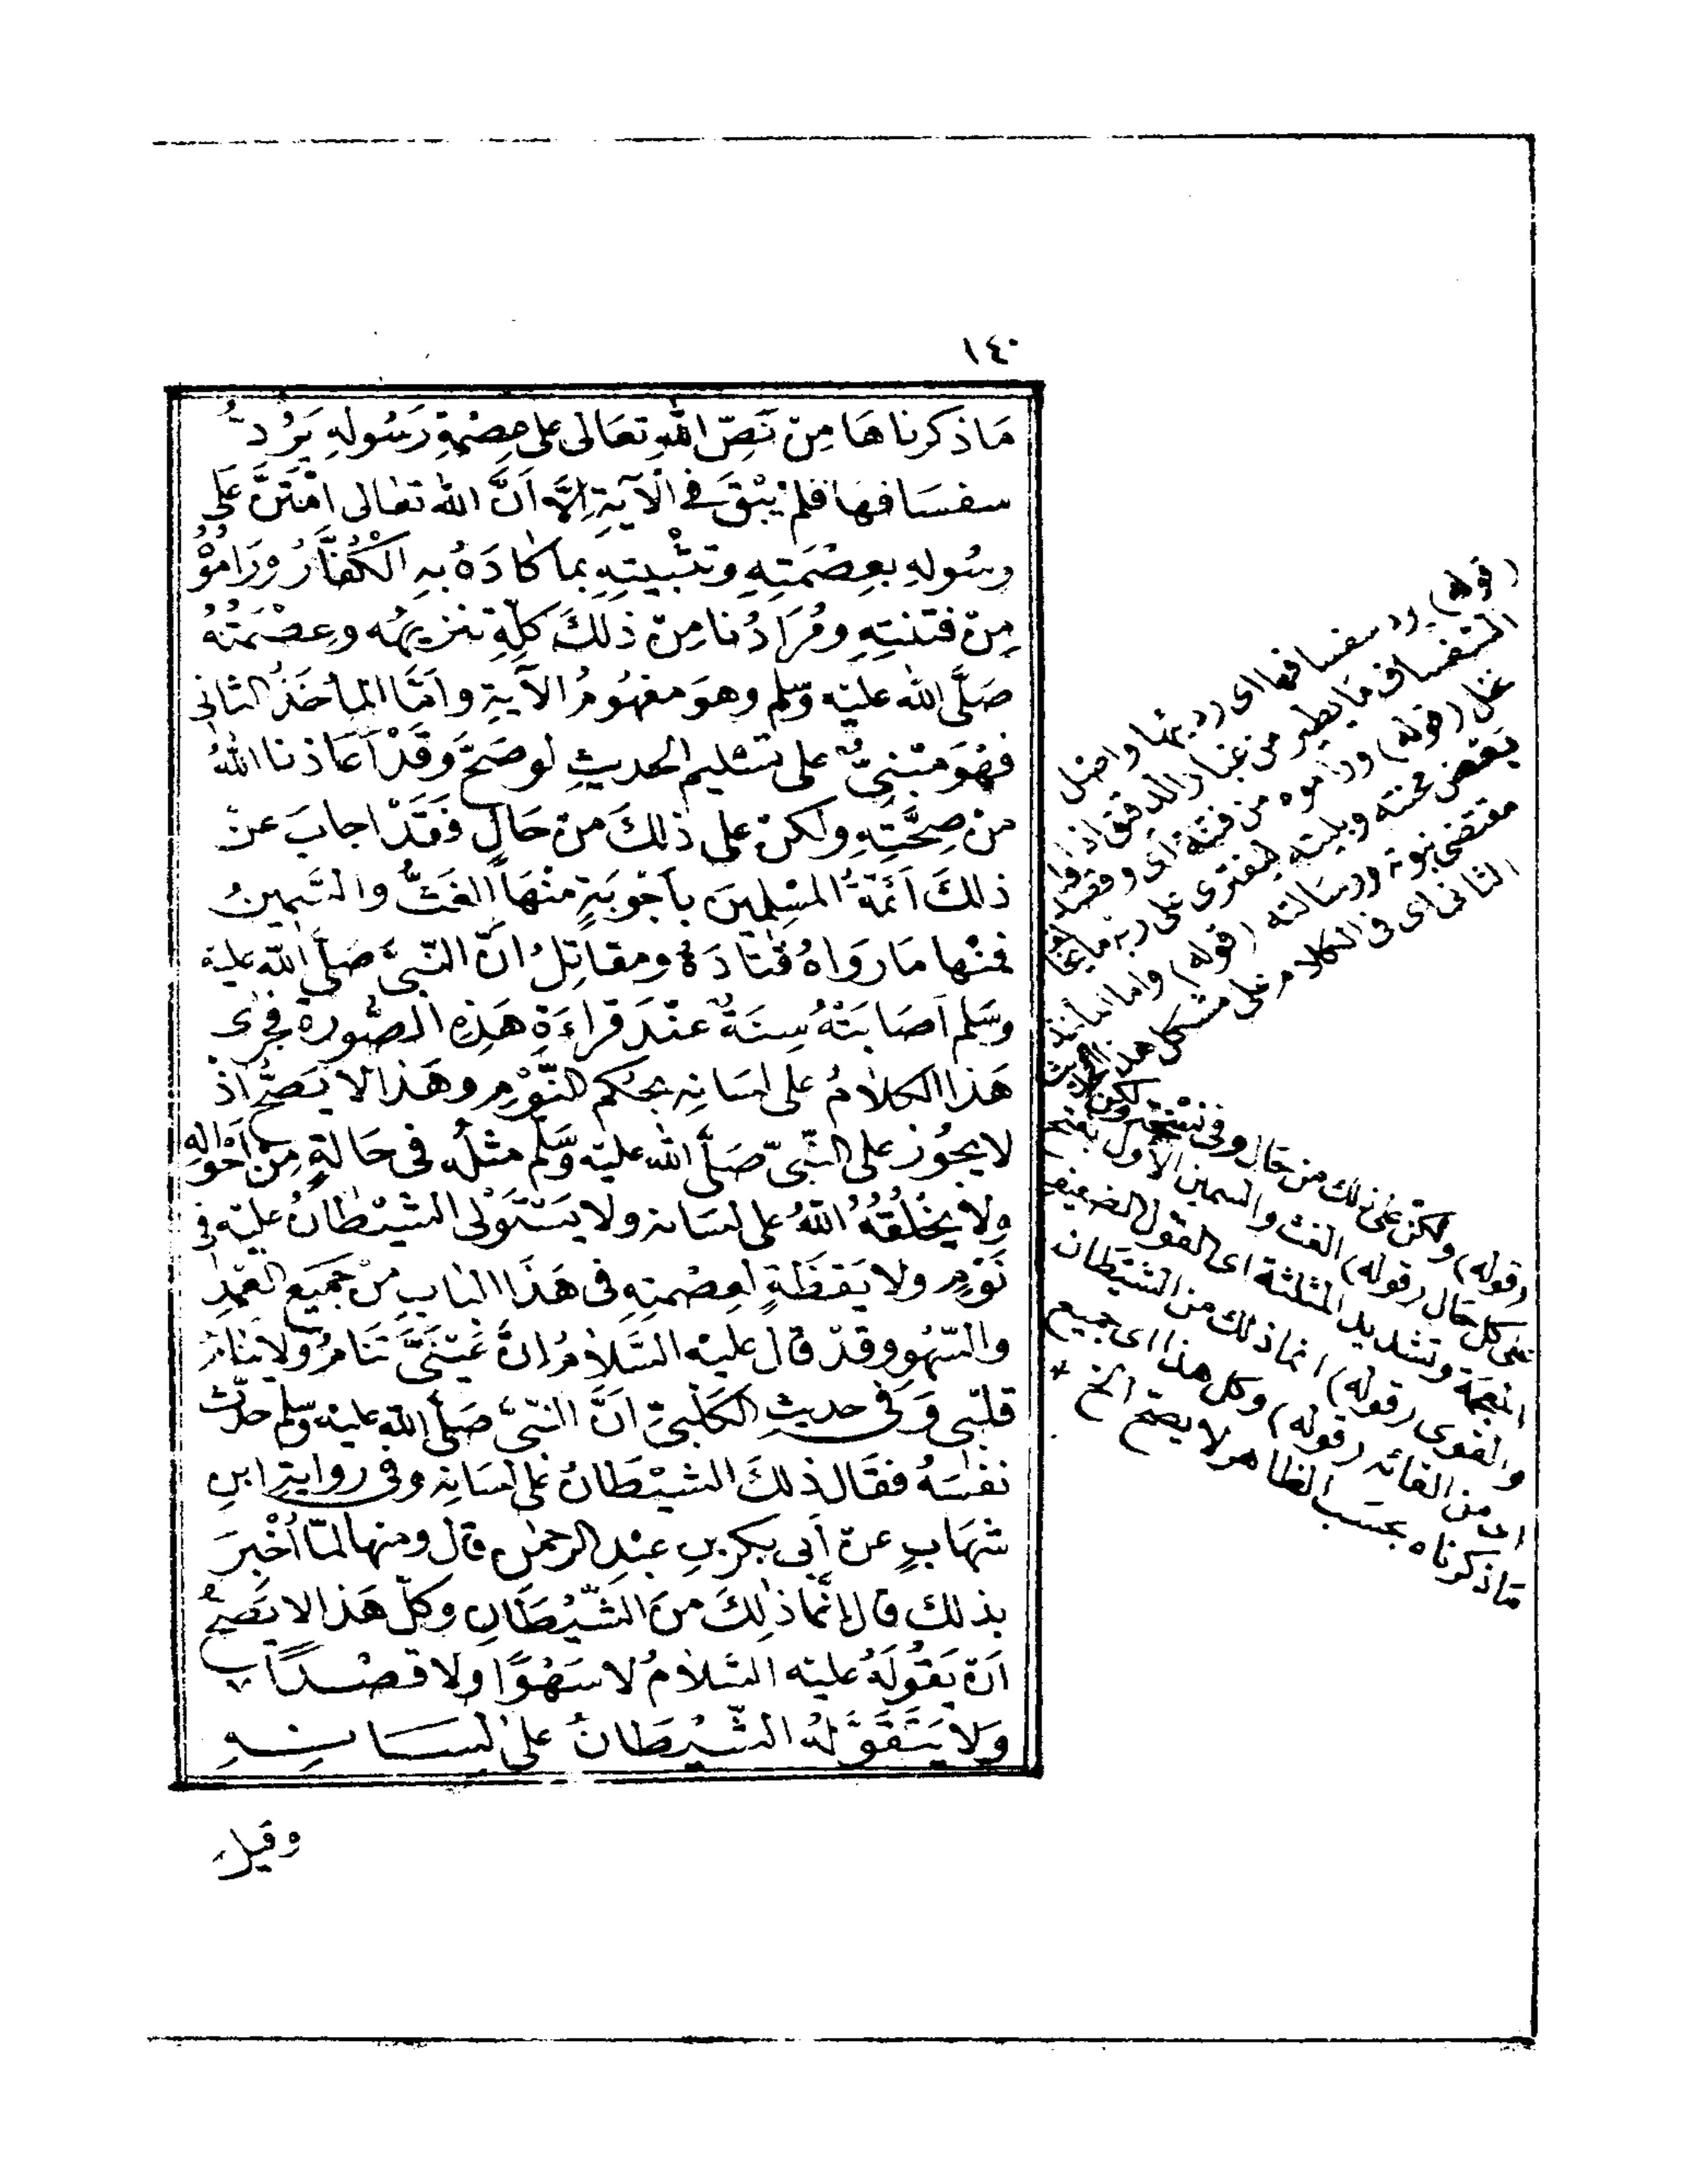 ١٤٠
مَا ذكرناهَا مِنْ نَصِّ اللّٰهِ تعَالى على عِصْمَةِ رَسُولِهِ يَرُدُّ
سفسَافهَا فلم يَبْقَ في الْآيَةِ اِلَّا اَنَّ الله تعَالى امْتَنَّ عَلَى
رسُولِهِ بعِصْمَتِهِ وتثْبيتِهِ بما كَادَهُ بهِ الْكُفَّارُ وَرَامُوْا
مِنْ فتنتِهِ ومُرَادُنا مِنْ ذلكَ كلِّهِ تنزيهُه وعِصْمَتُهُ
صَلَّى الله عليْه وسّلم وهوَ مفهُومُ الآيَةِ وامَّا المأخَذُ الثانى
فهُوَ مَبْنِىٌّ على تسْليم الحديثِ لو صَحَّ وَقَدْ اَعَاذنا اللّٰهُ
من صِحَّتِهِ ولكنْ على ذلكَ من حَالٍ فَقَدْ اجابَ عنْ
ذلكَ اَئمّةُ المسْلِمِينَ بأجْوبَةٍ منْهَا الْغَثُّ والسَّمِينُ
فمنْها مَا رَوَاهُ قتَادَةُ ومقاتِلُ انّ النّبىَّ صَلَّى اللّه عليهْ
وسَّلم اَصَابَتْهُ سِنَةٌ عنْدَ قراءَةِ هَذِهِ الصُّورة فجرَى
هَذا الكلَامُ على لسَانِه بحُكم النَّوْمِ وهَذا لا يَصَحُّ اذْ
لا يجُوزُ على النّبىّ صَلَّى الله عليْه وسَّلم مثلُه فى حَالَةٍ مِنْ اَحْوَالِهِ
ولا يخْلُقُهُ اللّهُ على لسَانه ولا يسْتَوْلى الشيْطانُ عليْه فى
نَوْمٍ ولا يَقظَةٍ لعِصْمتِهِ فى هَذَا البَابِ مِنْ جَمِيَع العَمْدِ
والسّهْوِ وقدْ قالَ عليْه السَّلامُ اِنَّ عَيْنَىَّ تَنامُ ولا يَنَامُ
قلبْى وَفى حديثِ الكَلْبِىّ اَنَّ النبىَّ صَلَّى اللّه عليه وسّلم حدّث
نفسَهُ فقَال ذلكَ الشيْطَانُ على لسَانِه وفى روايَةِ ابنِ
شهَابٍ عنْ اَبى بكر بنِ عبْدِ الرحمٰن قال ومنها لمّا اُخْبِرَ
بذلك قال اِنَّما ذلِكَ منَ الشّيْطَانِ وكلّ هَذا لا يَصَحُّ
اَنْ يَقُولَهُ عليْه السَّلامُ لا سَهْوًا ولا قصْدًا
وَلا يَتَقَوَّلَهُ الشّيْطَانُ على لسَانِهِ
وقيل
(قوله) يرد سفسافها اى رديّها واصل
السفساف ما يطير من غبار الدقيق اذا
نخل (قوله) وراموه من فتنته اى وقصدوا
بعض محنته وبليته ليفترى على ربه ما
مقتضى نبوته ورسالته (قوله) واما المأخذ
الثانى اى فى الكلام على مشكل هذا الحديث
(قوله) ولكن على ذلك من حال وفى نسخة ولكن
على كل حال (قوله) الغث والسمين الاول بفتح
المعجمة وتشديد المثلثة اى القول الضعيف
والقوى (قوله) انما ذلك من الشيطان
اى من القائه (قوله) وكل هذا اى جميع
ما ذكرناه بحسَب الظاهر لا يصحّ الخ *